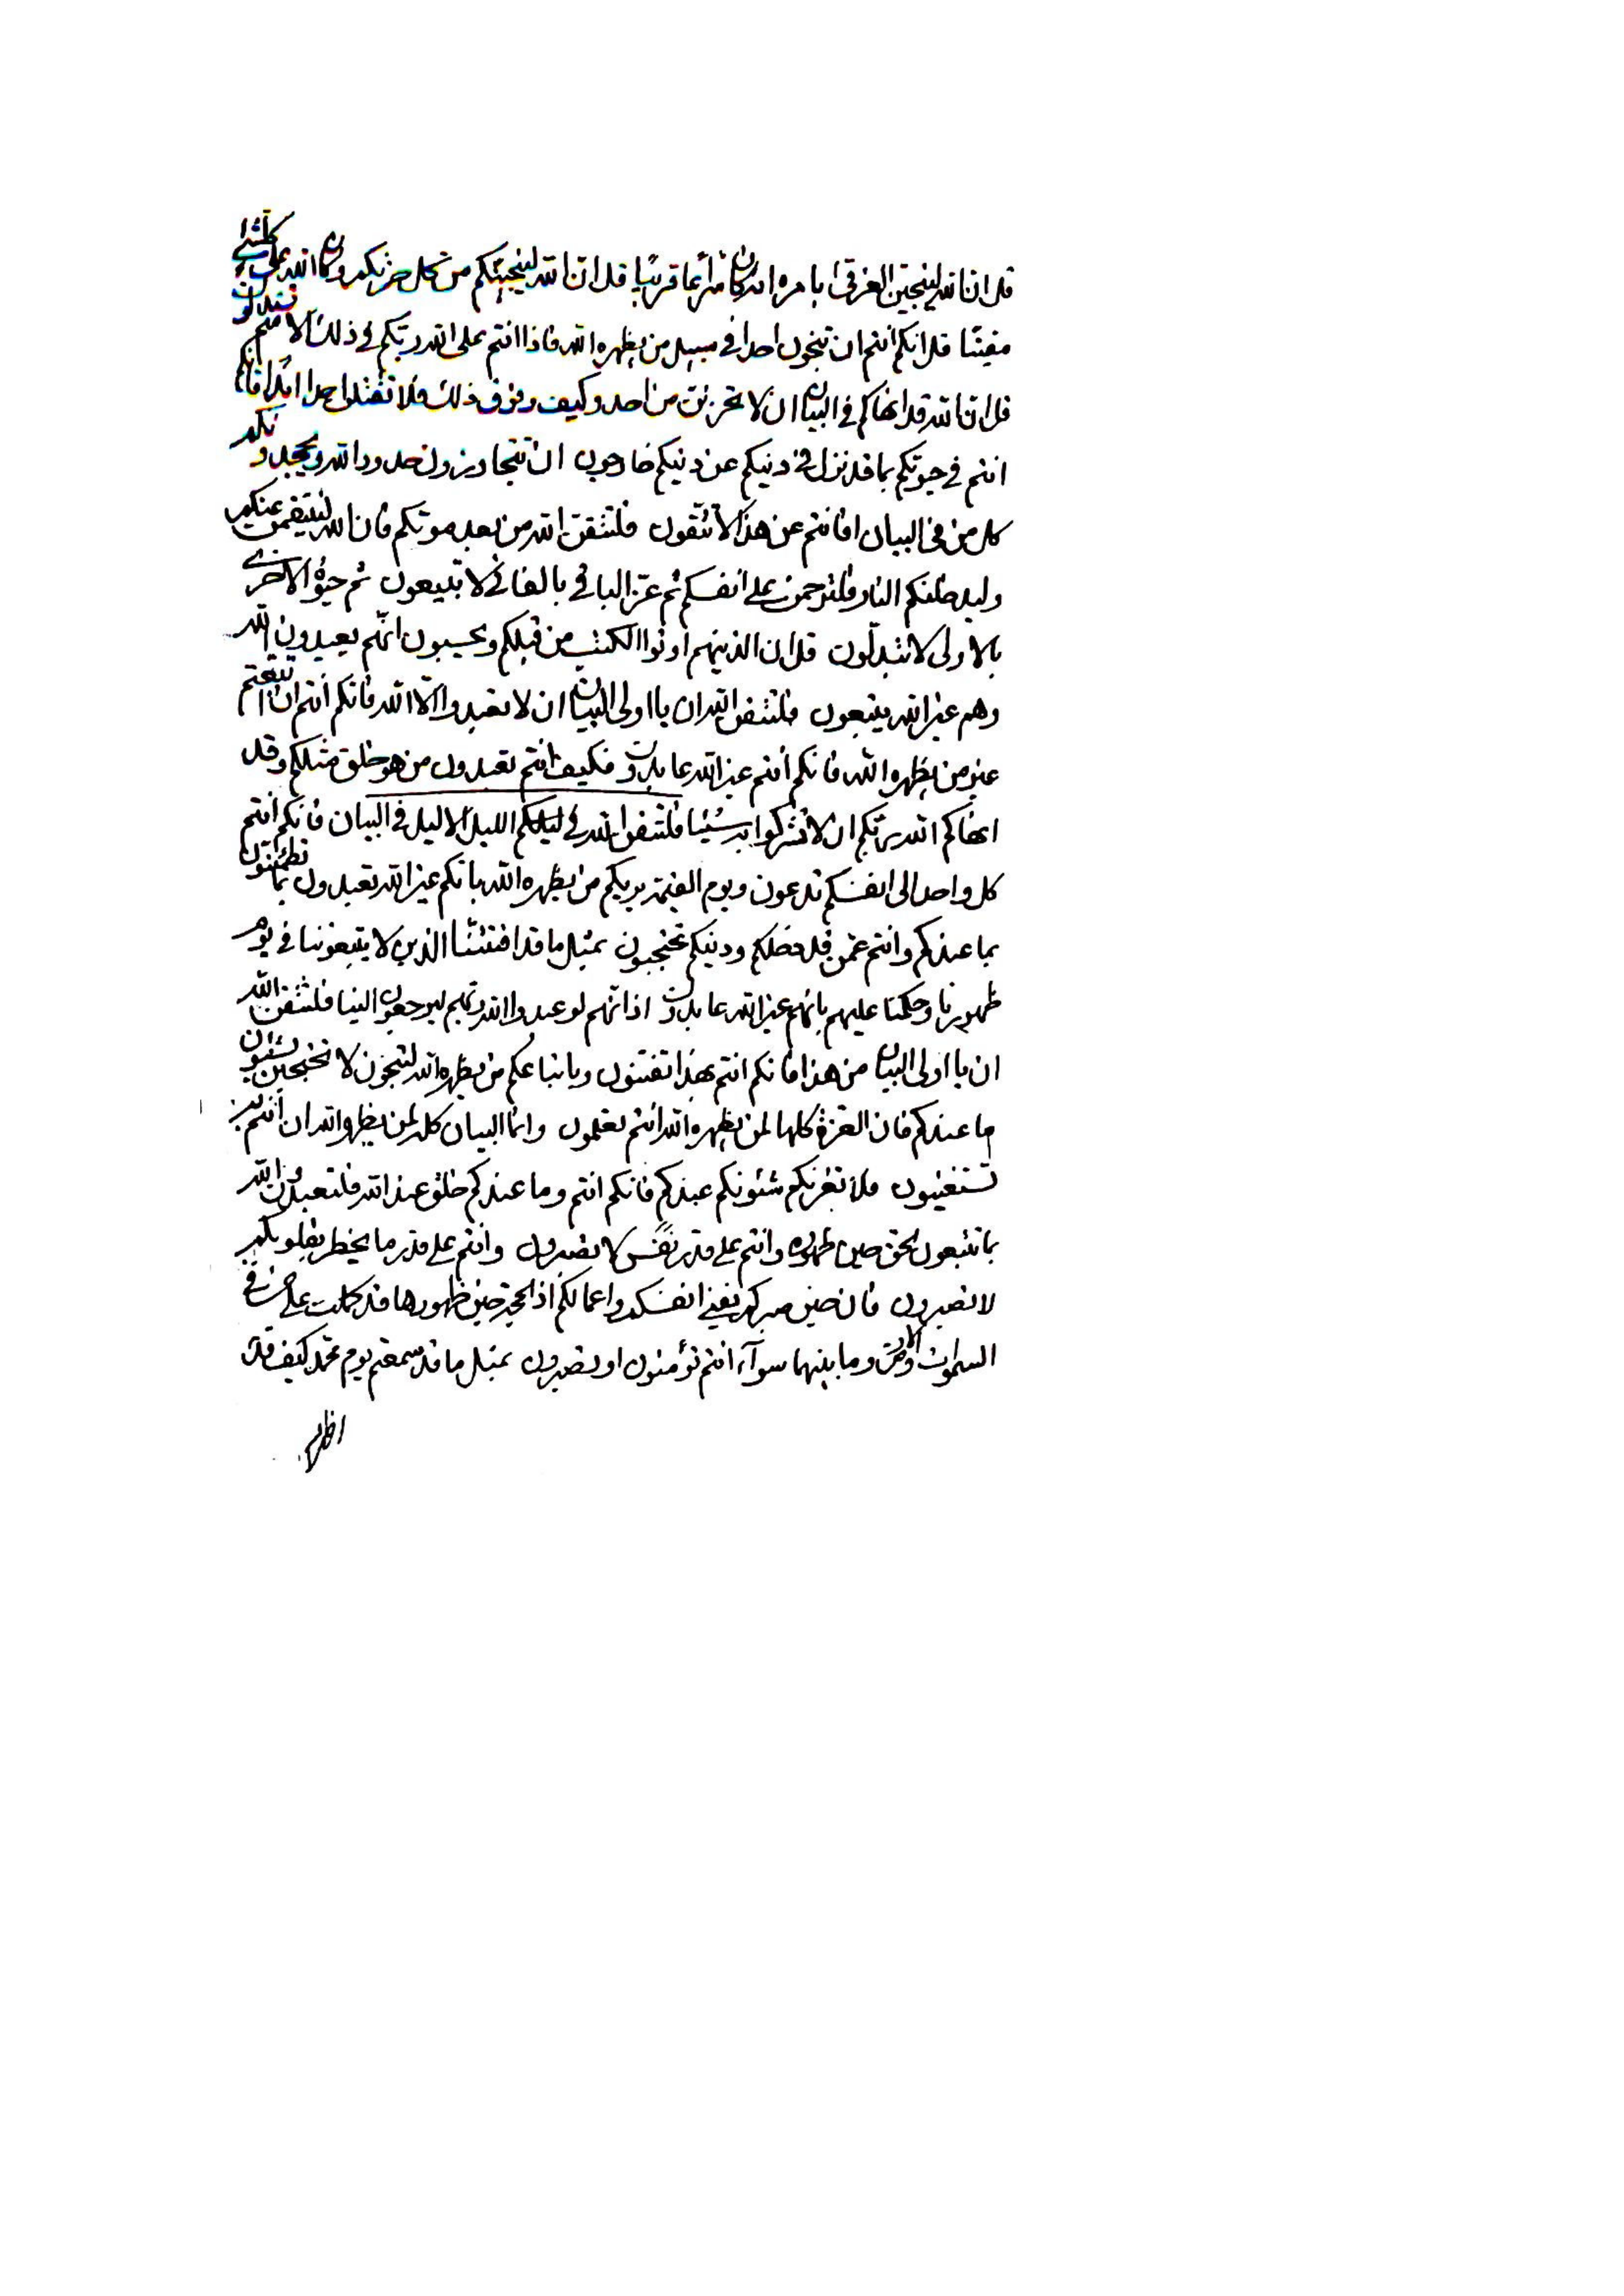 قل ان الله لينجين الغرقى بامره انه كان قريبا قل ان الله لينجينكم من كل حزنكم وكان الله على كلشئ
مقيتا قل انكم انتم ان تنجون احدا في سبيل من يظهره الله فاذا انتم على الله ربكم في ذلك لا
قل ان الله قد انهاكم في البيان ان لا تحزنن من احد وكيف وفوق ذلك فلا تقتلوا احدا ابدا فانكم
انتم في حيوتكم بما قد نزل في دينكم عن دينكم خارجون ان تتجاوزون حدود الله
كل من في البيان افانتم عن هذا لا تتقون فلتتقن الله من بعد موتكم فان الله لينتقمن عنكم
وليدخلنكم النار فلترحمن على انفسكم ثم عز الباقي بالفاني لا تبيعون ثم حيوة الاخرى
بالاولى لا تبدلون قل ان الذينهم اوتوا الكتب من قبلكم ويحسبون انهم يعبدون الله
وهم غير الله يتبعون فلتتقن الله ان يا اولي البيان ان لا تعبدوا الا الله فانكم انتم ان اتبعتم
غير من يظهره الله فانكم انتم غير الله عابدون فكيف انتم تعبدون من هو خلق مثلكم وقد
انهاكم الله ربكم ان لا تشركوا به شيئا فلتتقوا الله في ليلكم الليل الاليل في البيان فانكم انتم
كل واحد الى انفسكم تدعون ويوم القيمة يريكم من يظهره الله بانكم غير الله تعبدون بما تظمئنون
بما عندكم وانتم عمن قد خلقكم ودينكم تحتجبون بمثل ما قد افتتنا الذين لا يتبعوننا في يوم
ظهورنا وحكمنا عليهم بانهم غير الله عابدون اذ انهم لو عبدوا الله ربهم ليرجعون الينا فلتتقن الله
ان يا اولي البيان من هذا فانكم انتم بهذا تفتنون وباتباعكم من يظهره الله لتنجون لا تحتجبن بشئون
ما عندكم فان العزة كلها لمن يظهره الله انتم تعلمون وانما البيان كله لمن يظهره الله ان انتم به
تستغنيون فلا تغرنكم شئونكم عندكم فانكم انتم وما عندكم خلق عند الله فلتعبدن الله
بما تتبعون الحق حين ظهوره وانتم على قدر نفس لا تصبرون وانتم على قدر ما يخطر بقلوبكم
لا تصبرون فان حين صبركم يفنى انفسكم واعمالكم اذ الحجة حين ظهورها قد كملت على من في
السموات والارض وما بينهما سواء انتم تؤمنون او تصبرون بمثل ما قد سمعتم يوم محمد كيف قد
اظهر